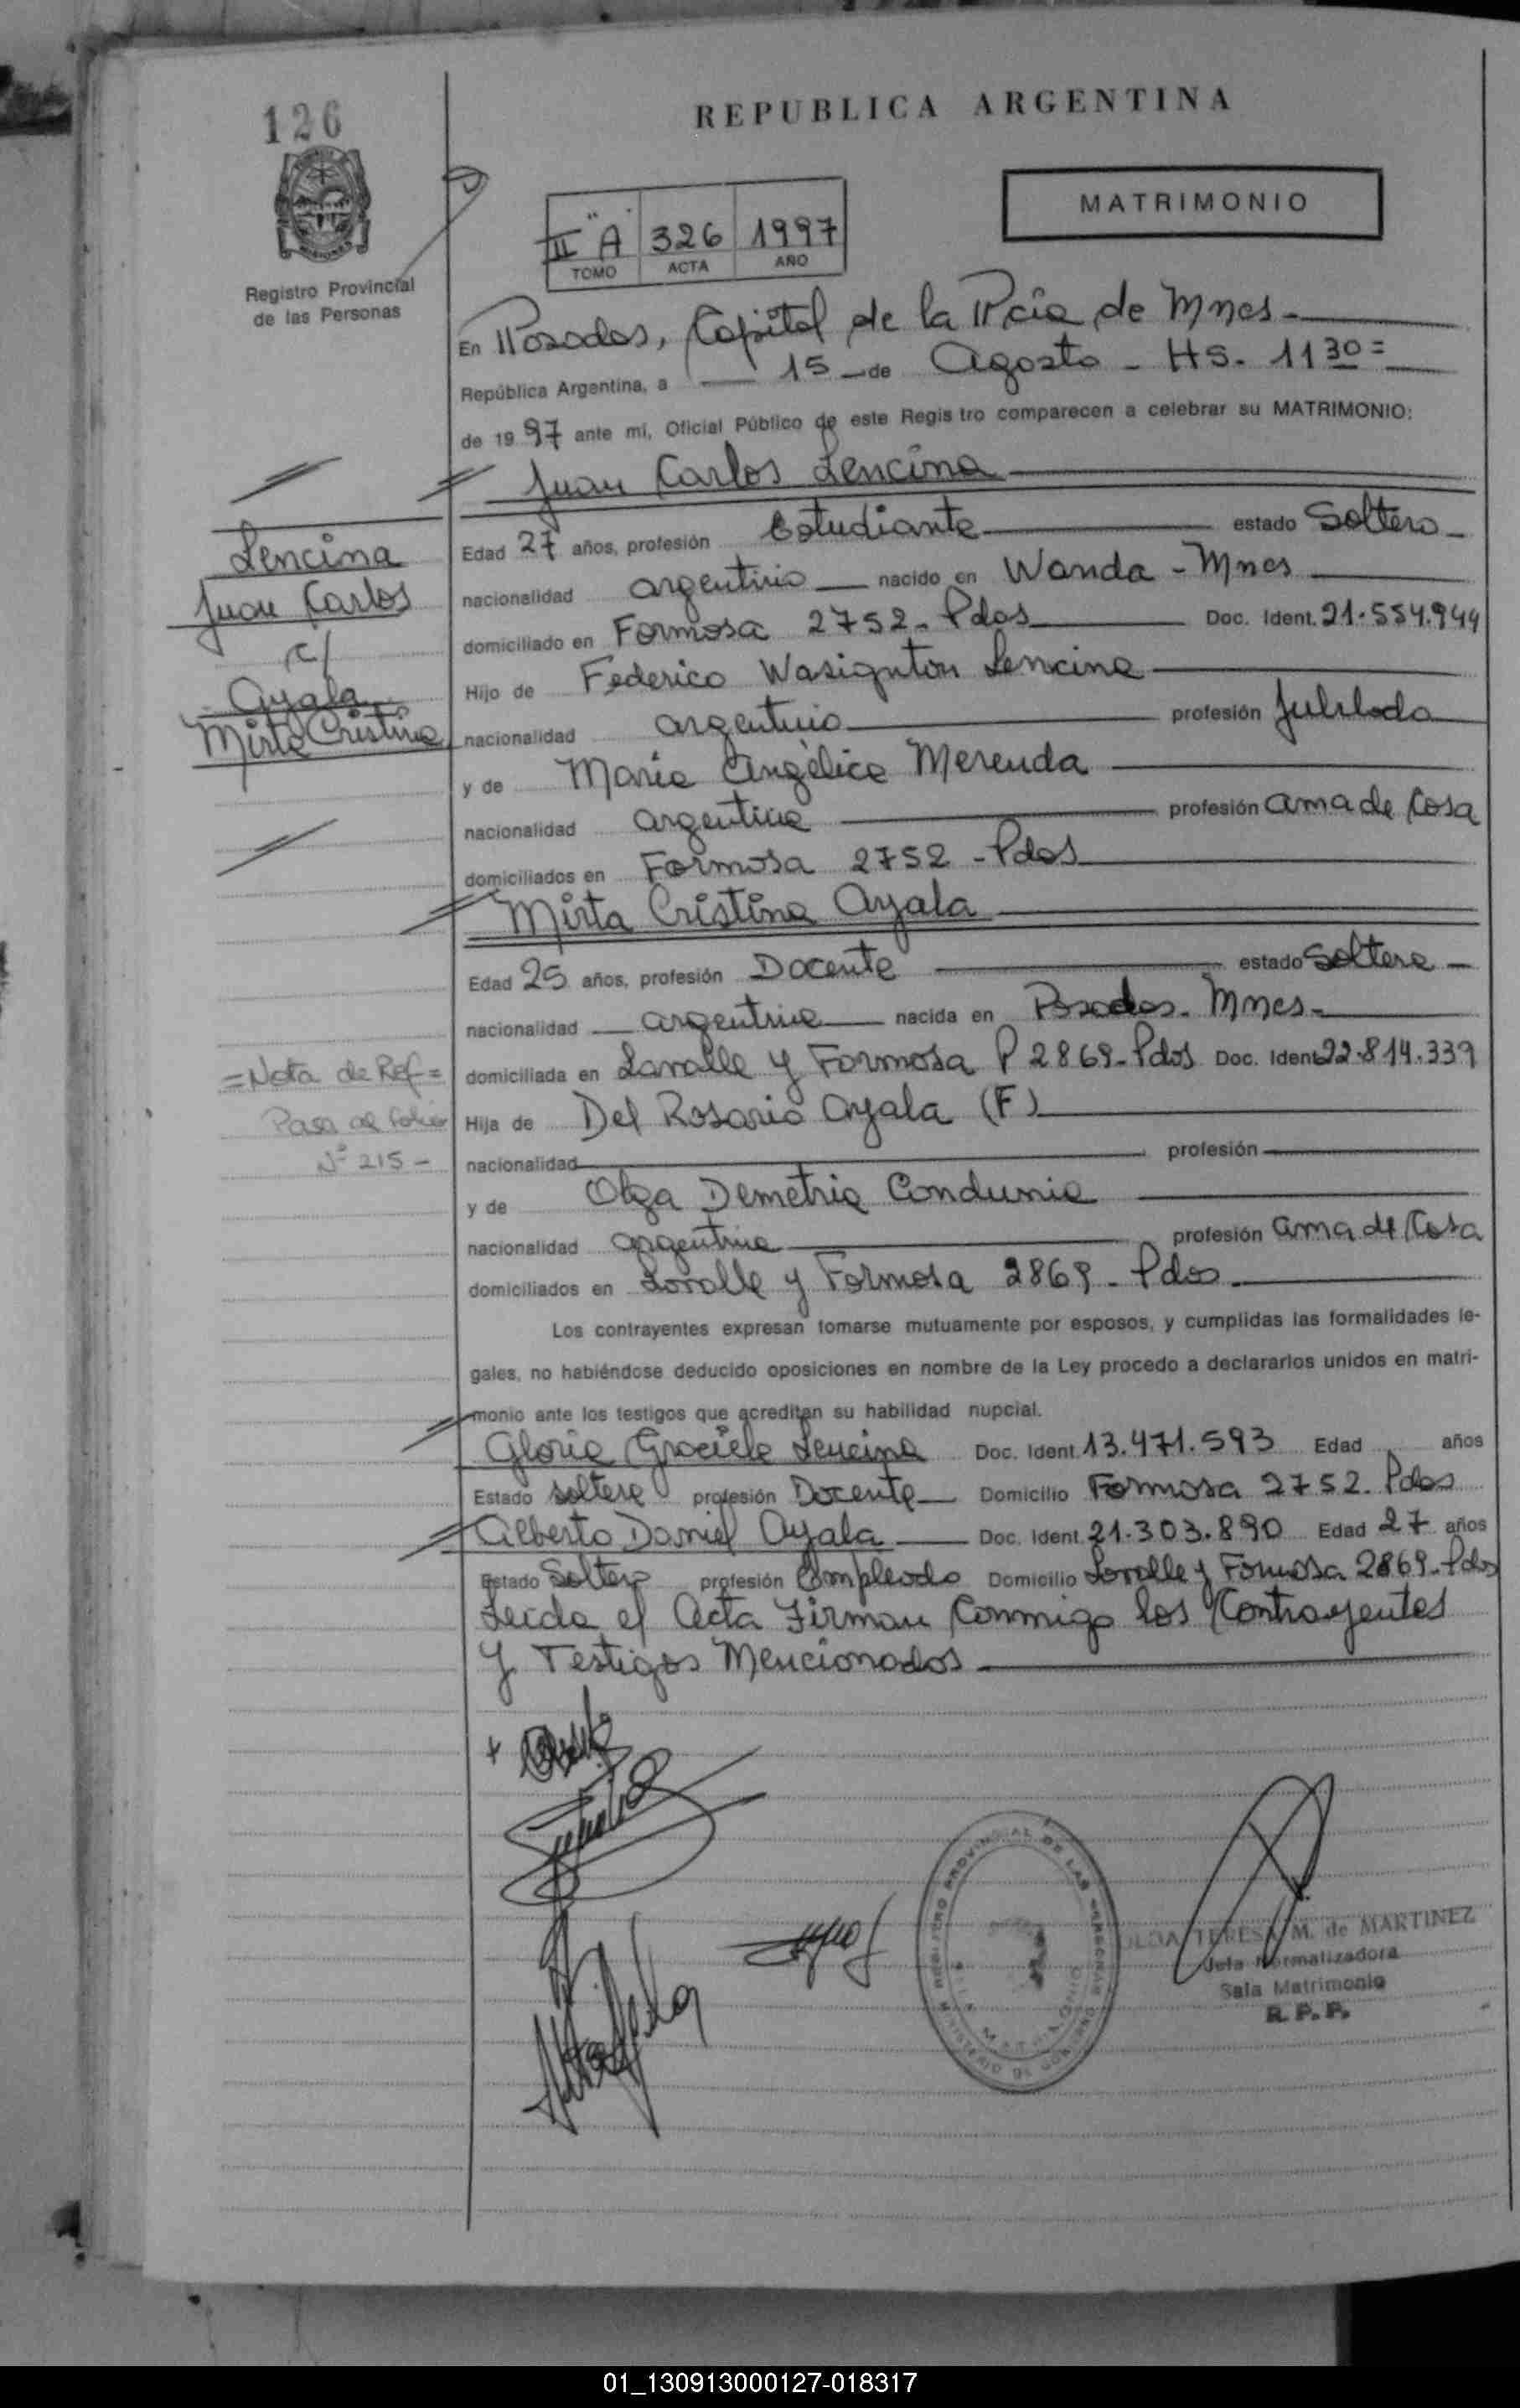 126
REPUBLICA ARGENTINA
MATRIMONIO
II "A" 326 1997
TOMO ACTA AÑO
Registro Provincial
de las Personas
En Posadas, Capital de la Pcia de Mnes
República Argentina, a 15 de Agosto - HS. 11 30 =
de 1997 ante mi, Oficial Público de este Registro comparecen a celebrar su MATRIMONIO:
Juan Carlos Lencina
Lencina
Juan Carlos
c/
Ayala
Mirta Cristina
Edad 27 años, profesión Estudiante estado Soltero
nacionalidad argentino nacido en Wanda - Mnes
domiciliado en Formosa 2752 - Pdas Doc. Ident. 21.554.944
Hijo de Federico Wasignton Lencina
nacionalidad argentino profesión Jubilado
y de Maria Angélica Merenda
nacionalidad argentina profesión ama de Casa
domiciliados en Formosa 2752 - Pdas
Mirta Cristina Ayala
Edad 25 años, profesión Docente estado Soltera
nacionalidad argentina nacida en Posadas - Mnes
domiciliada en Lavalle y Formosa P 2869 - Pdas Doc. Ident 22.814.339
Hija de Del Rosario Ayala (F)
nacionalidad profesión
y de Olga Demetria
nacionalidad argentina profesión ama de Casa
domiciliados en Lavalle y Formosa 2869 - Pdas
= Nota de Ref =
Pasa al folio
Nº 215 -
Los contrayentes expresan tomarse mutuamente por esposos, y cumplidas las formalidades le-
gales, no habiéndose deducido oposiciones en nombre de la Ley procedo a declararlos unidos en matri-
monio ante los testigos que acreditan su habilidad nupcial.
Gloria Graciela Lencina Doc. Ident. 13.471.593 Edad años
Estado soltera profesión Docente Domicilio Formosa 2752 - Pdas
Alberto Daniel Ayala Doc. Ident. 21.303.890 Edad 27 años
Estado Soltero profesión Empleado Domicilio Lavalle y Formosa 2869 - Pdas
Leida el Acta Firman Conmigo los Contrayentes
y Testigos Mencionados
REGISTRO PROVINCIAL DE LAS PERSONAS
MINISTERIO DE GOBIERNO
TERESA M. de MARTINEZ
Jefa Normalizadora
Sala Matrimonio
R. P. P.
01_130913000127-018317